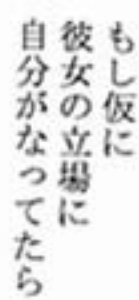 もし仮に
彼女の立場に
自分がなってたら